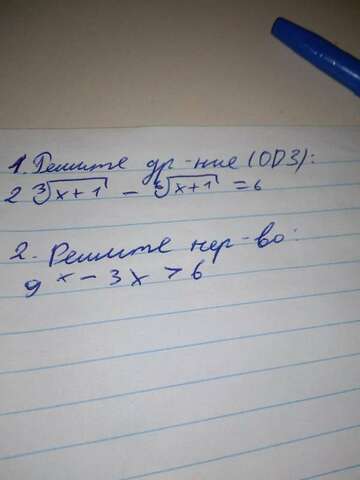 1. Решите ур-ние (ОДЗ):
2 ∛x+1 − ∜x+1 = 6
2. Решите нер-во:
9ˣ − 3x > 6